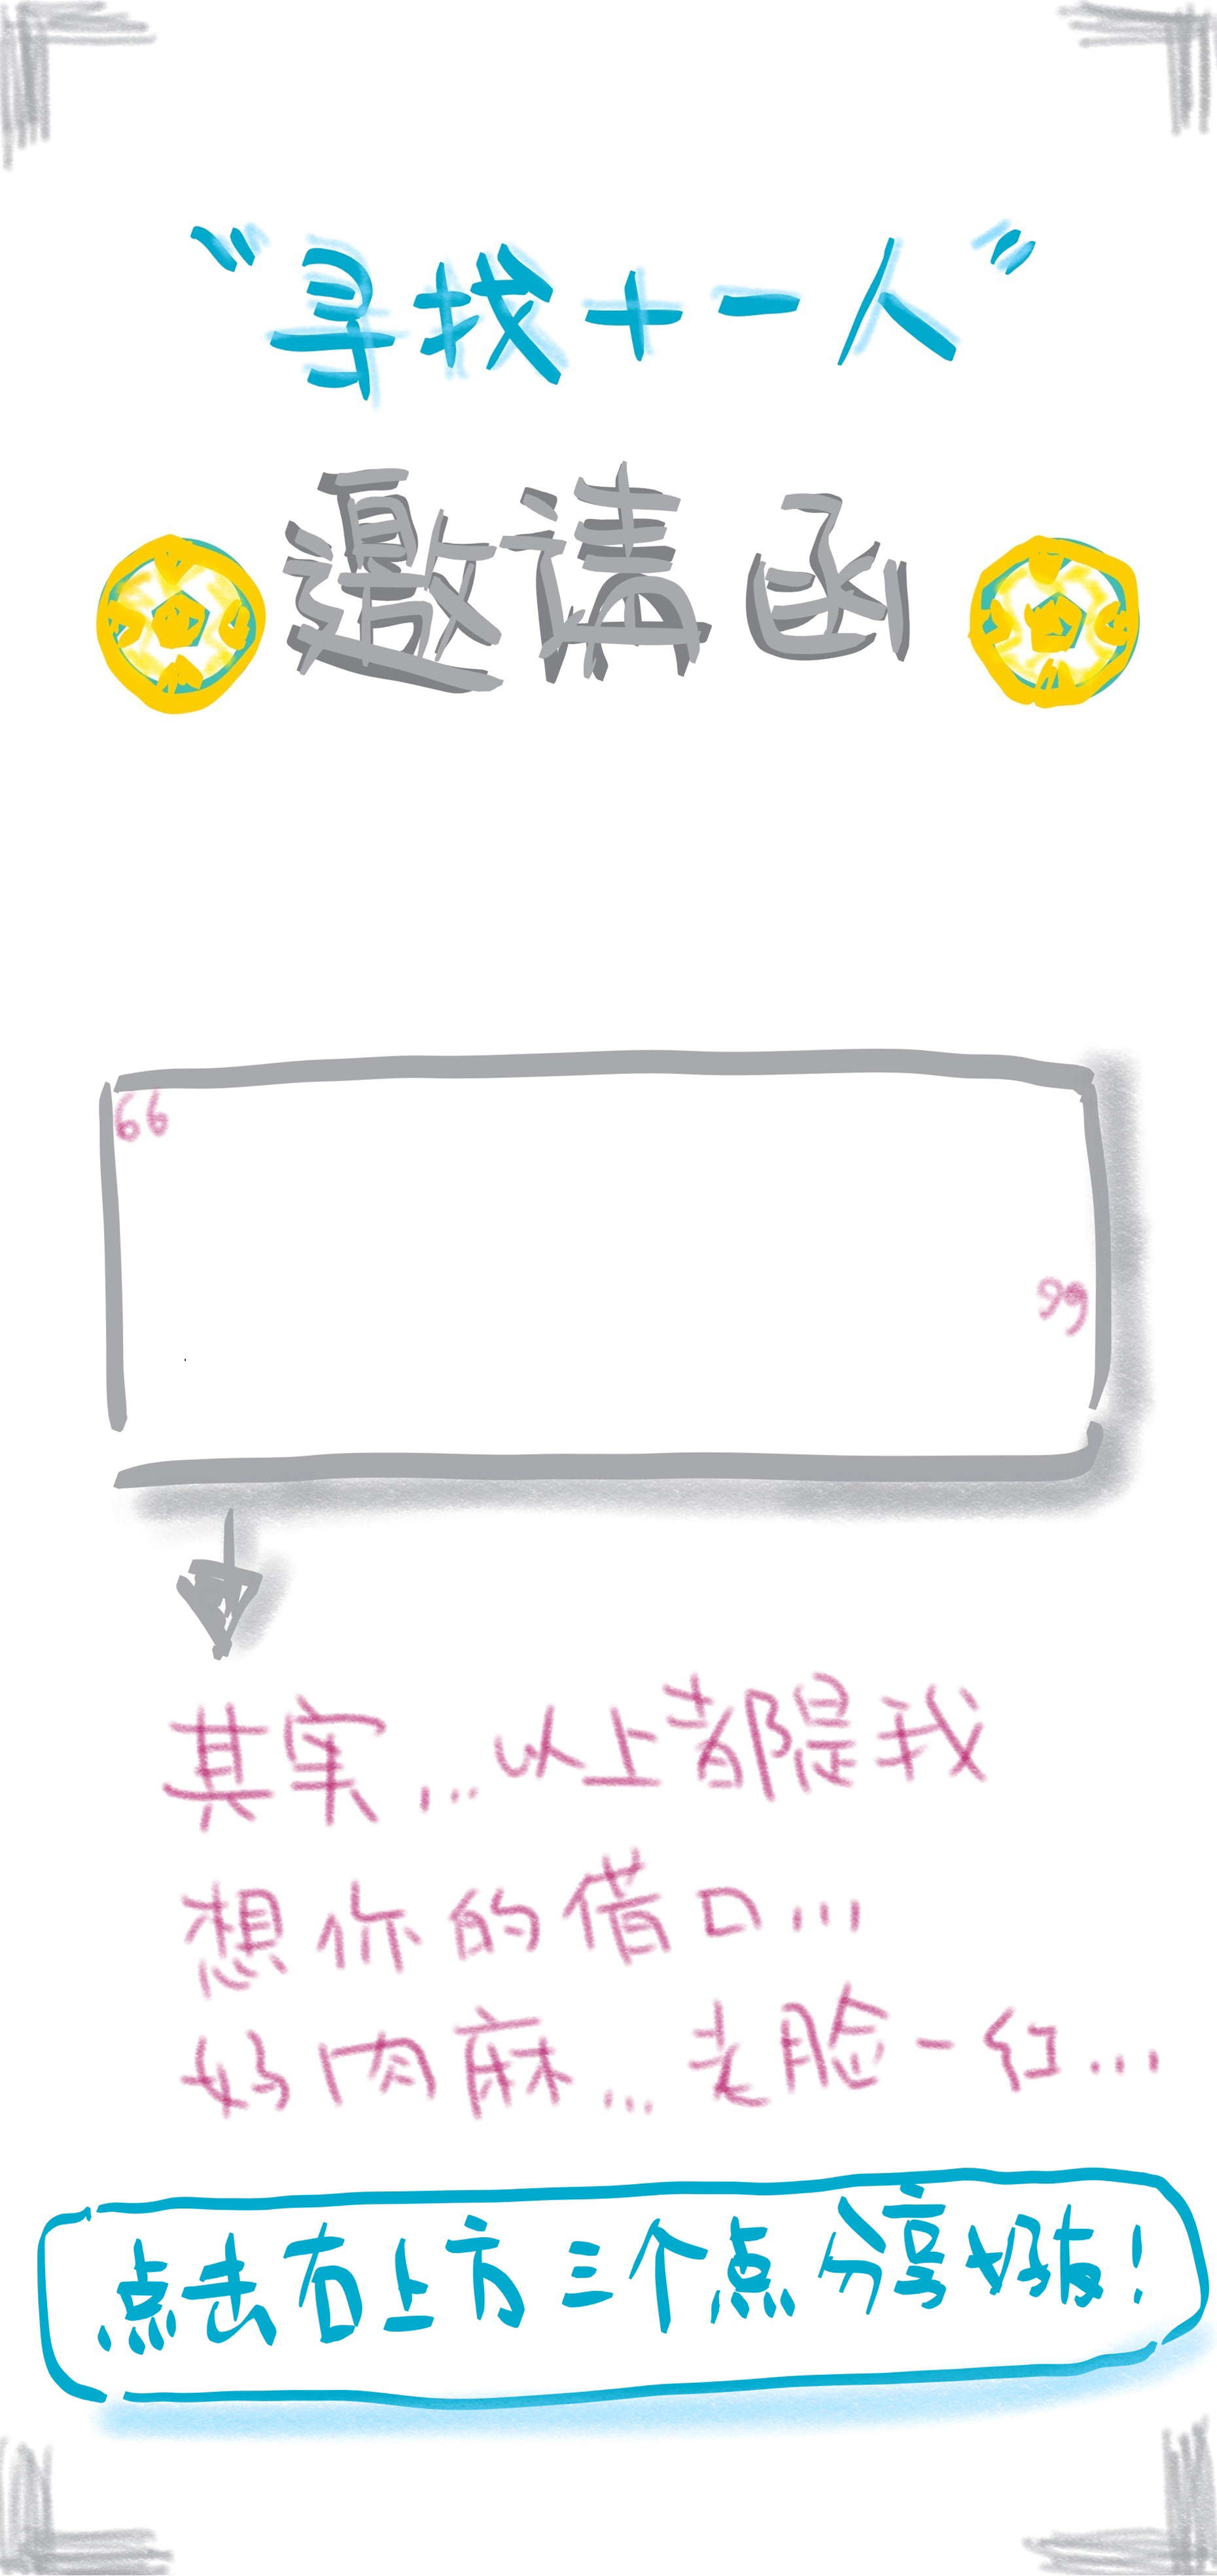 “寻找十一人”
邀请函
“
”
其实...以上都是我
想你的借口...
好肉麻...老脸一红...
点击右上方三个点分享好友!